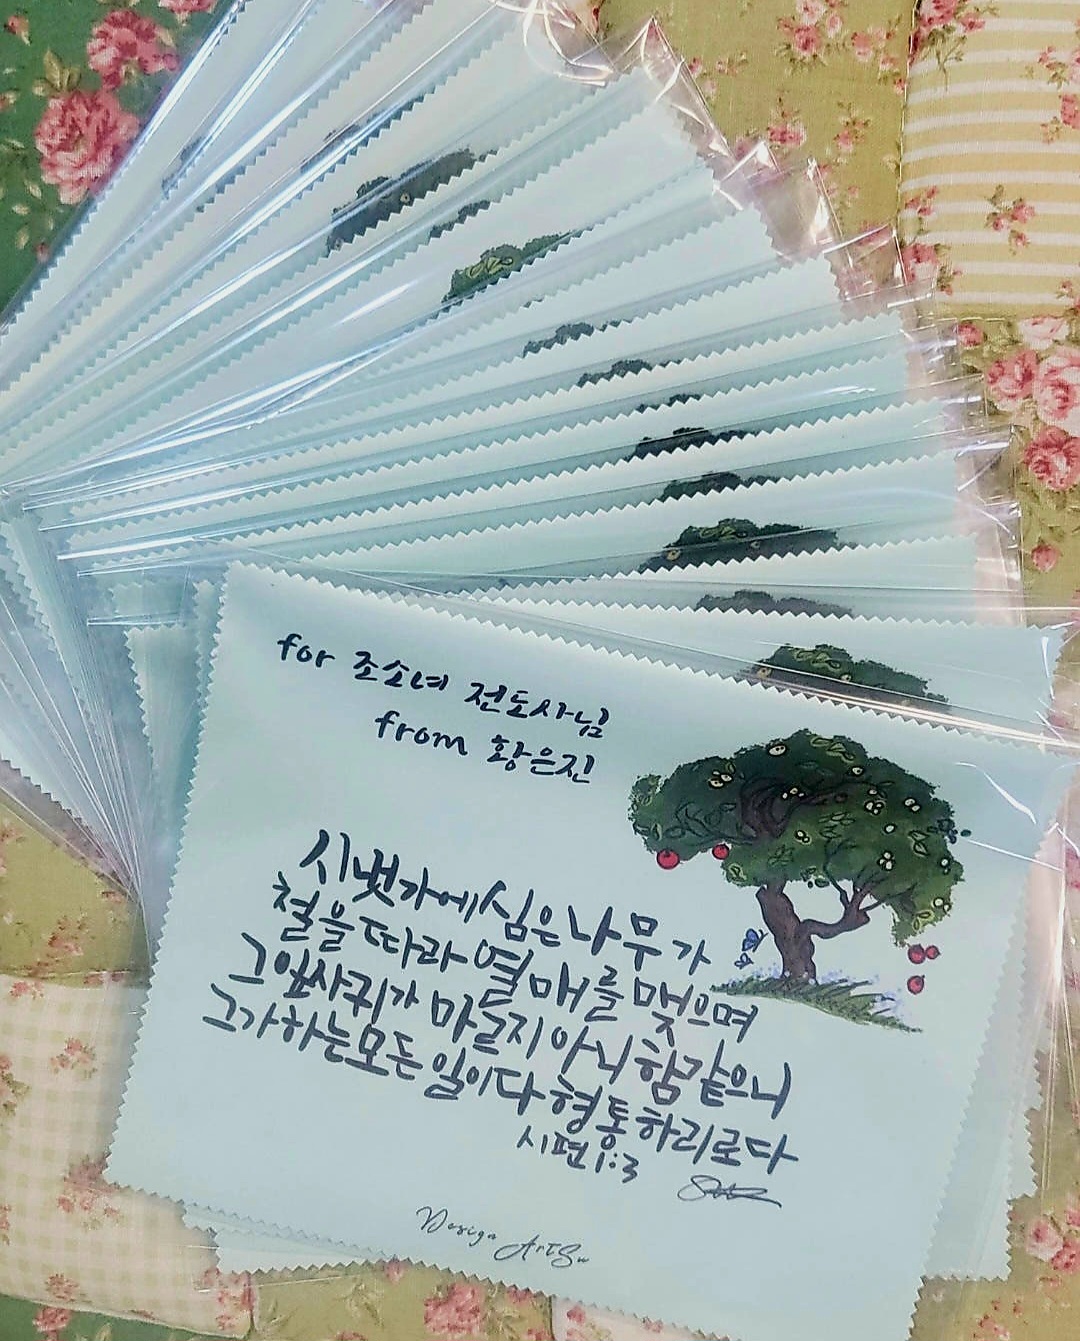 for 조소녀 전도사님
from 황은진
시냇가에 심은 나무가
철을 따라 열매를 맺으며
그 잎사귀가 마르지 아니함 같으니
그가 하는 모든 일이 다 형통하리로다
시편 1:3
Design ArtSu